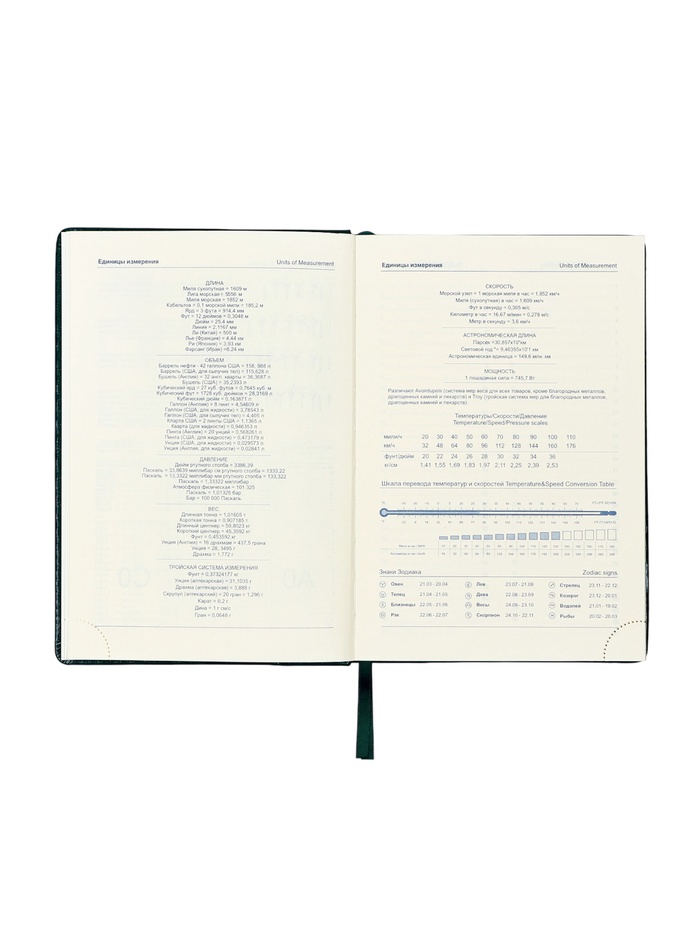 Единицы измерения
Units of Measurement
ДЛИНА
Миля сухопутная = 1609 м
Лига морская = 5556 м
Миля морская = 1852 м
Кабельтов = 0.1 морской мили = 185,2 м
Ярд = 3 фута = 914.4 мм
Фут = 12 дюймов = 0,3048 м
Дюйм = 25.4 мм
Линия = 2.1167 мм
Ли (Китай) = 500 м
Лье (Франция) = 4.44 км
Ри (Япония) = 3.93 км
Фарсанг (Иран) =6.24 км
ОБЪЕМ
Баррель нефти - 42 галлона США = 158, 988 л
Баррель (США, для сыпучих тел) = 115,628 л
Бушель (Англия) = 32 англ. кварты = 36,3687 л
Бушель (США) = 35,2393 л
Кубический ярд = 27 куб. футов = 0,7645 куб. м
Кубический фут = 1728 куб. дюймов = 28,3169 л
Кубический дюйм = 16,3871 л
Галлон (Англия) = 8 пинт = 4,54609 л
Галлон (США, для жидкости) = 3,78543 л
Галлон (США, для сыпучих тел) = 4,405 л
Кварта США = 2 пинты США = 1,1365 л
Кварта (для жидкости) = 0,946353 л
Пинта (Англия) = 20 унций = 0,568261 л
Пинта (США, для жидкости) = 0,473179 л
Унция (США, для жидкости) = 0,029573 л
Унция (Англия) = 0,02841 л
ДАВЛЕНИЕ
Дюйм ртутного столба = 3386.39
Паскаль = 33,8639 миллибар см ртутного столба = 1333.22
Паскаль = 13,3322 миллибар мм ртутного столба = 133,322
Паскаль = 1,33322 миллибар
Атмосфера физическая = 101 325
Паскаль = 1,01325 бар
Бар = 100 000 Паскаль
ВЕС
Длинная тонна = 1,01605 т
Короткая тонна = 0,907185 т
Длинный центнер = 50,8023 кг
Короткий центнер = 45,3592 кг
Фунт = 0,453592 кг
Унция (Англия) = 16 драхмам = 437,5 грана
Унция = 28, 3495 г
Драхма = 1,772 г
ТРОЙСКАЯ СИСТЕМА ИЗМЕРЕНИЯ
Фунт = 0,37324177 кг
Унция (аптекарская) = 31,1035 г
Драхма (аптекарская) = 3,888 г
Скрупул (аптекарский) = 20 гран = 1,296 г
Карат = 0,2 г
Дина = 1 г•см/с
Гран = 0,0648 г
Единицы измерения
Units of Measurement
СКОРОСТЬ
Морской узел = 1 морская миля в час = 1,852 км/ч
Миля (сухопутная) в час = 1,609 км/ч
Фут в секунду = 0,305 м/с
Километр в час = 16,67 м/мин = 0,278 м/с
Метр в секунду = 3,6 км/ч
АСТРОНОМИЧЕСКАЯ ДЛИНА
Астрономическая единица = 149,6 млн. км
МОЩНОСТЬ
1 лошадиная сила = 745,7 Вт
Различают Avoirdupois (система мер веса для всех товаров, кроме благородных металлов,
драгоценных камней и лекарств) и Troy (тройская система мер для благородных металлов,
драгоценных камней и лекарств).
Температуры/Скорости/Давление
Temperature/Speed/Pressure scales
мили/ч 20 30 40 50 60 70 80 90 100 110
км/ч 32 48 64 80 96 112 128 144 160 176
фунт/дюйм 20 22 24 26 28 30 32 34 36
кг/см 1,41 1,55 1,69 1,83 1,97 2,11 2,25 2,39 2,53
Шкала перевода температур и скоростей Temperature&Speed Conversion Table
Знаки Зодиака
Zodiac signs
Овен 21.03 - 20.04 Лев 23.07 - 21.08 Стрелец 23.11 - 22.12
Телец 21.04 - 21.05 Дева 22.08 - 23.09 Козерог 23.12 - 20.01
Близнецы 22.05 - 21.06 Весы 24.09 - 23.10 Водолей 21.01 - 19.02
Рак 22.06 - 22.07 Скорпион 24.10 - 22.11 Рыбы 20.02 - 20.03